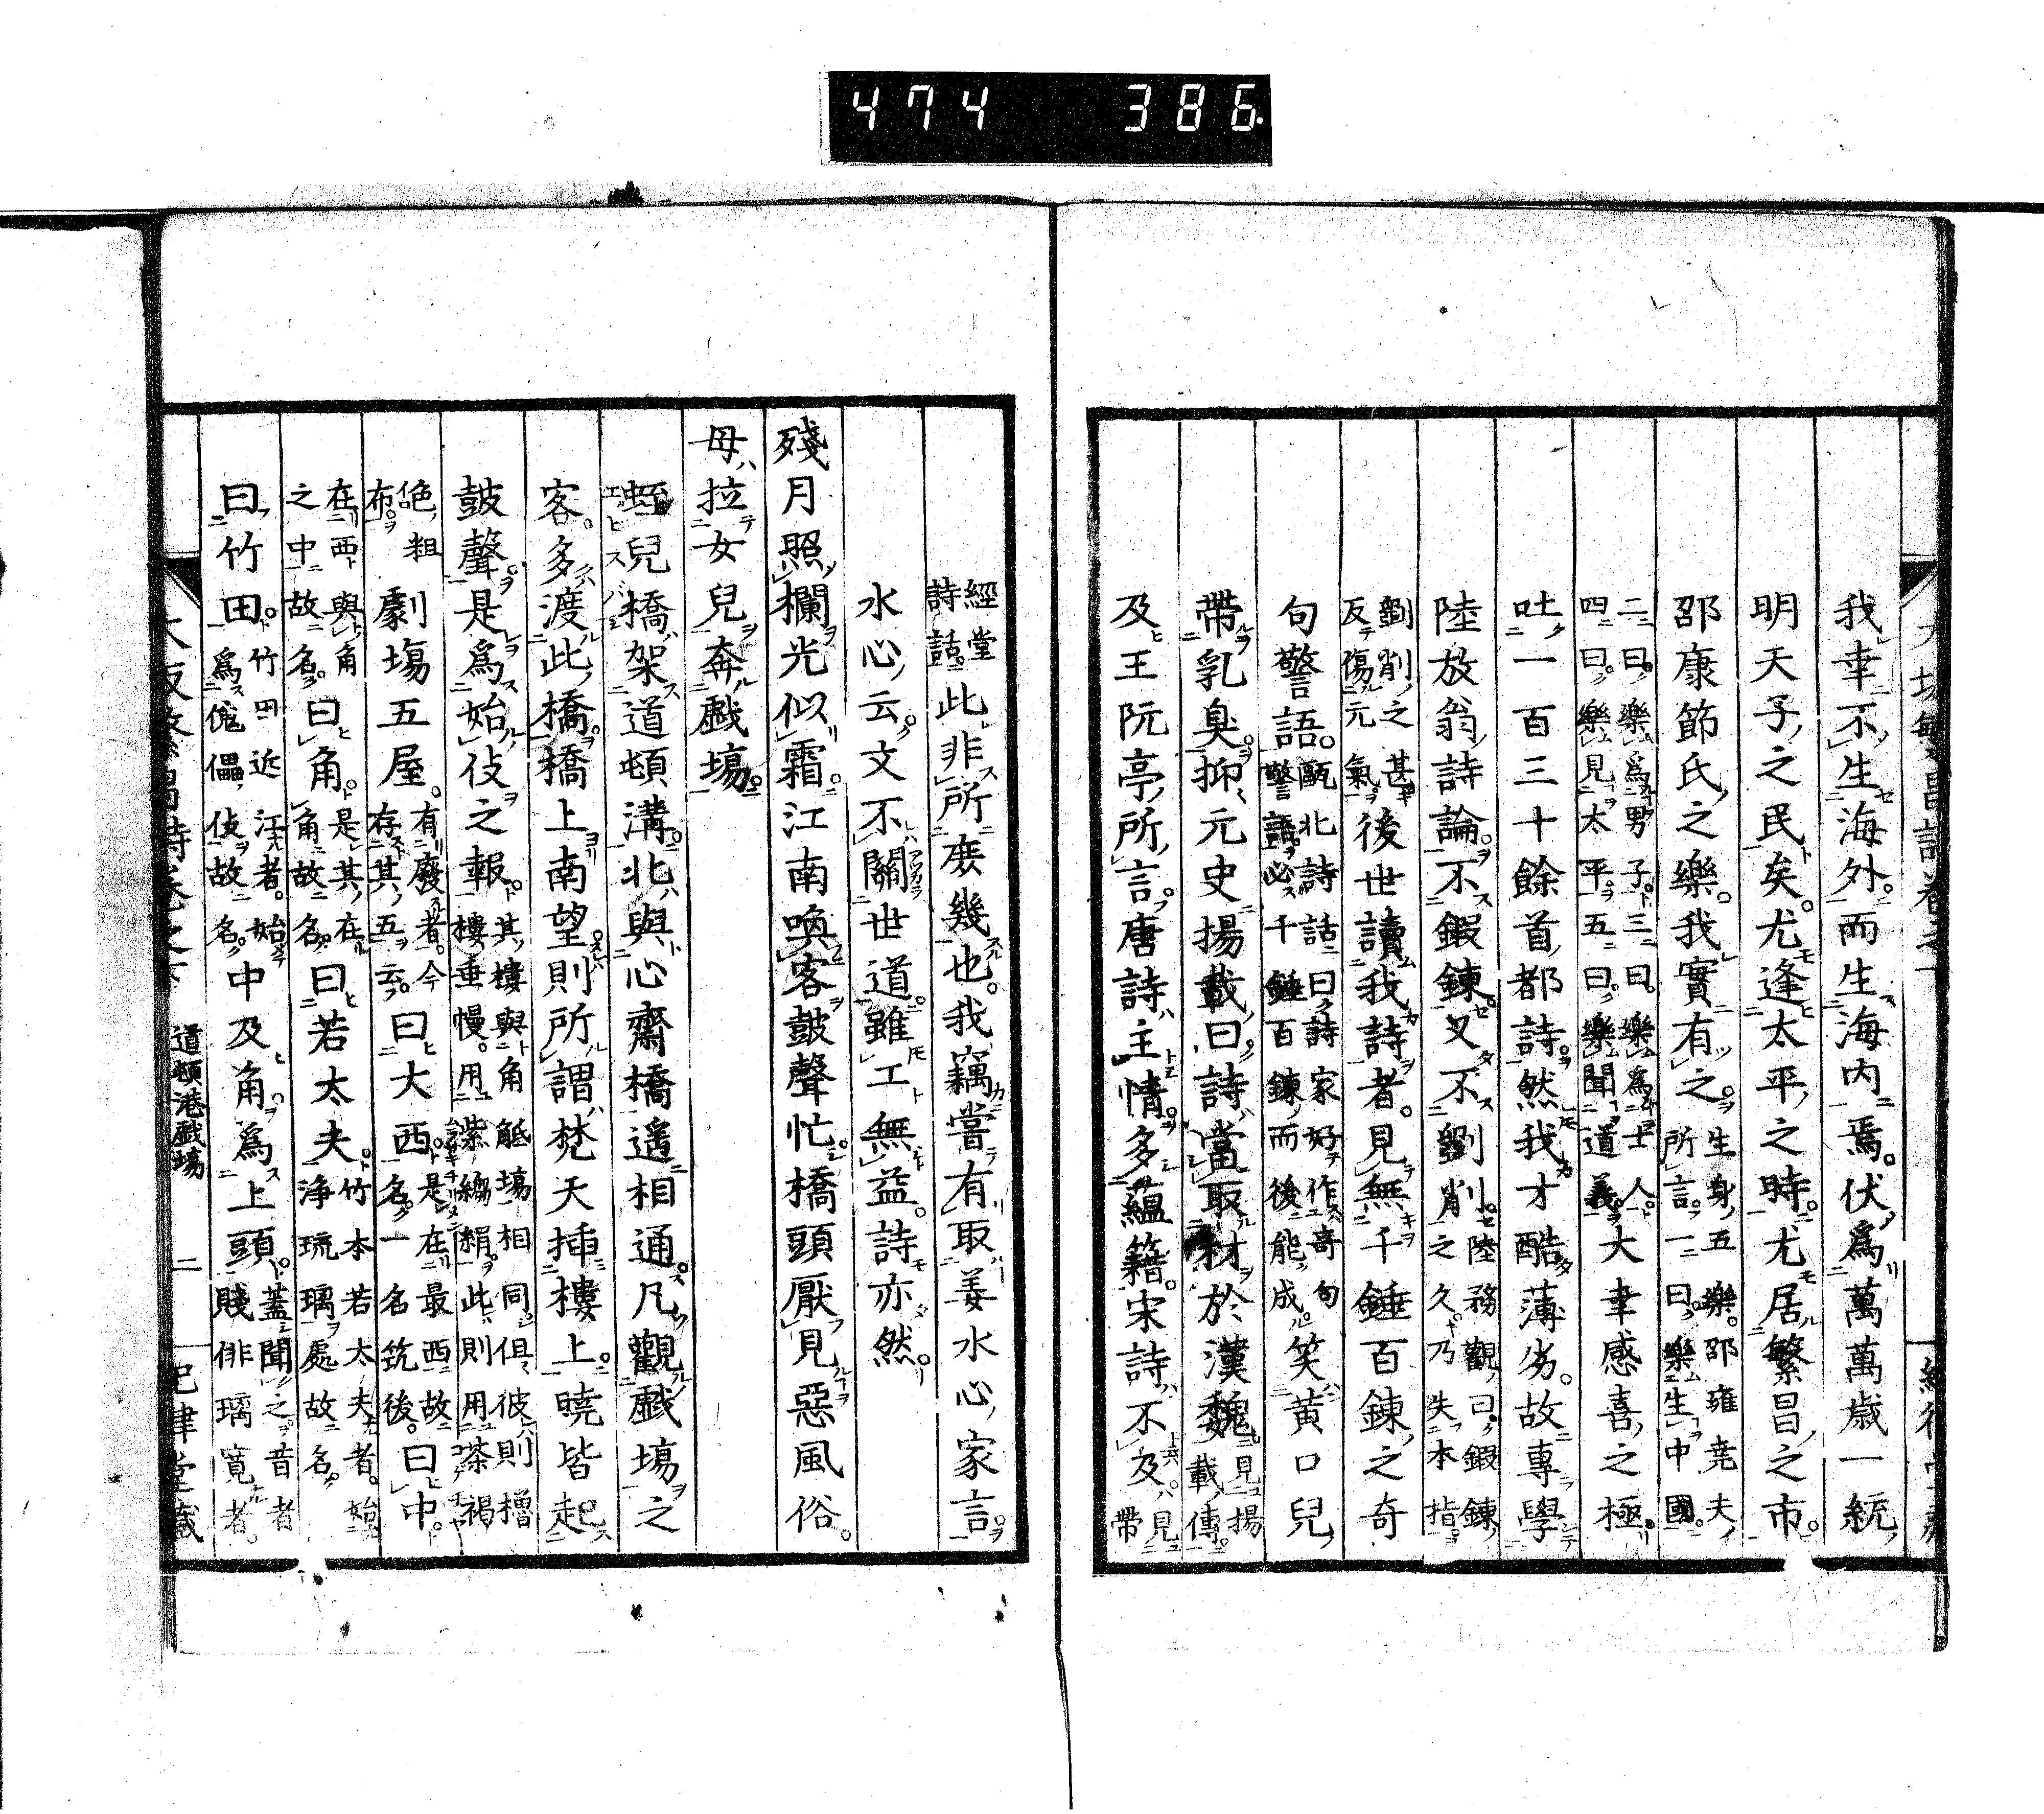 474 386
我幸不生海外而生海内焉。伏爲萬萬歳一統
明天子之民矣。尤逢太平之時尤居繁昌之市。
邵康節氏之樂。我實有之生身五樂。邵雍堯夫所言。一曰。樂生中國。
二曰。樂爲男子。三曰。樂爲士人。四曰。樂見太平。五曰。樂聞道義。大幸感喜之極
吐一百三十餘首都詩。然我才酷薄劣。故專學
陸放翁詩論。不鍜錬又不劉削陸務觀曰。鍜錬之久。乃失本指。
劉削之甚反傷元氣。後世讀我詩者。見無千錘百錬之奇
句警語。甌北詩話曰。詩家好作奇句警語。必千錘百錬而後能成。笑黄口兒
帶乳臭。抑元史揚載曰。詩當取材於漢魏見揚載傳。
及王阮亭所言。唐詩主情。多蘊籍。宋詩不及見帶
經堂詩話。此非所庻幾也。我竊嘗有取姜水心家言
水心云。文不關世道。雖工無益。詩亦然。
殘月照欄光似霜。江南喚客鼓聲忙。橋頭厭見惡風俗。
母拉女兒奔戯塲。
蛭兒橋架道頓溝。北與心齋橋遥相通。凡觀戯塲之
客。多渡此橋。橋上南望則所謂梵天揷樓上。曉皆起
鼓聲。是爲始伎之報其樓與角觝塲相同。但彼則櫓樓垂幔。用紫縐絹。此則用茶褐
色粗布。劇塲五屋。有廢者。今存其五云。曰大西。是在最西故名。一名筑後。曰中。
在西與角之中故名。曰角。是其在角故名。曰若太夫竹本若太夫者。始淨琉璃處故名。
曰竹田。竹田近江者。始爲傀儡伎故名。中及角爲上頭。蓋聞之。昔者賤俳璃寛者。
道頓港戯塲
二